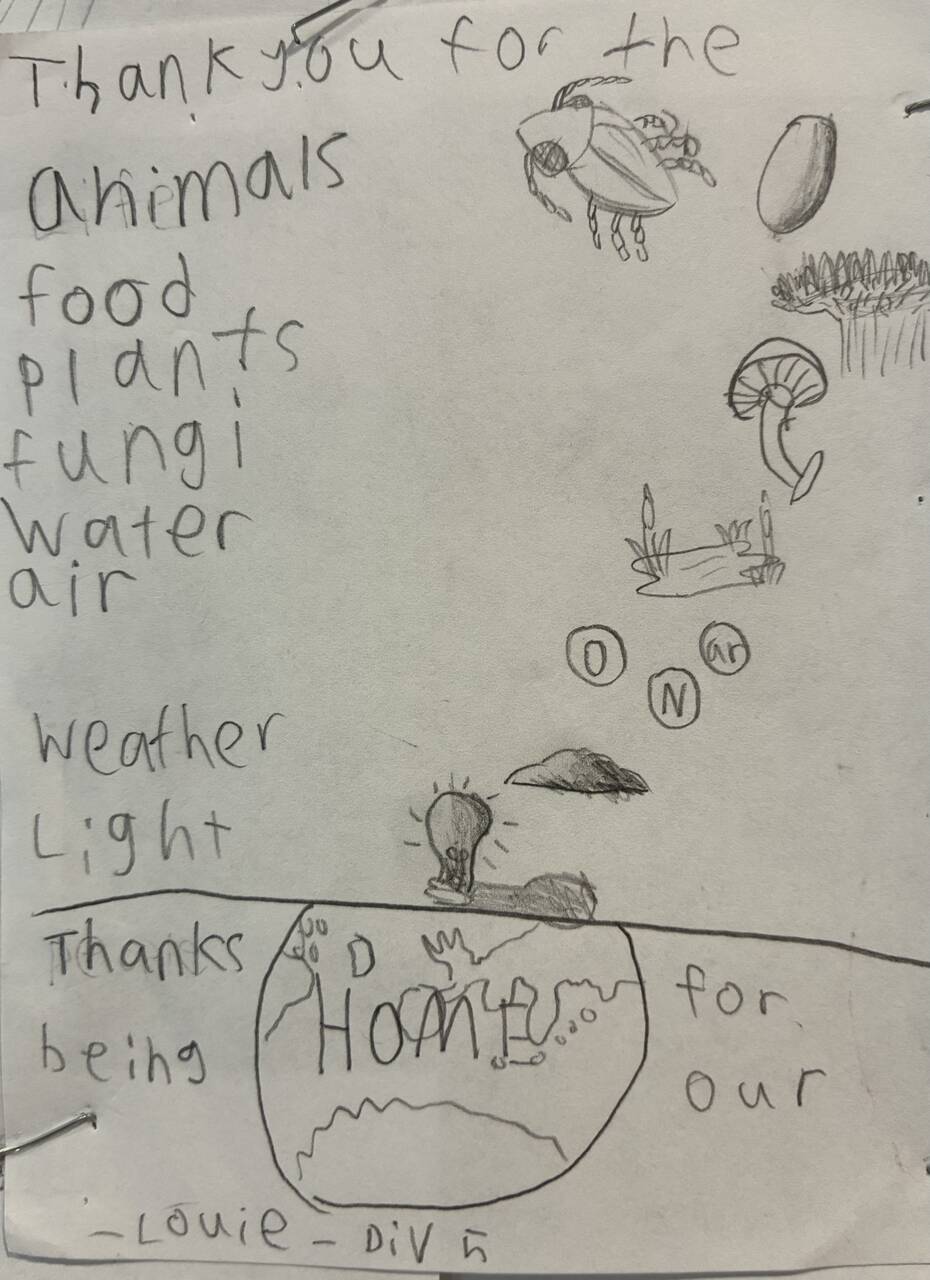 Thank you for the
animals
food
plants
fungi
water
air
O
ar
N
Weather
Light
Thanks for
being our
HOME
-Louie - DiV 5